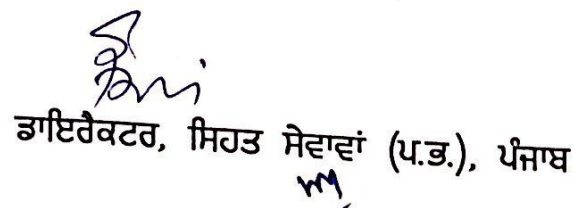 ਡਾਇਰੈਕਟਰ, ਸਿਹਤ ਸੇਵਾਵਾਂ (ਪ.ਭ.), ਪੰਜਾਬ